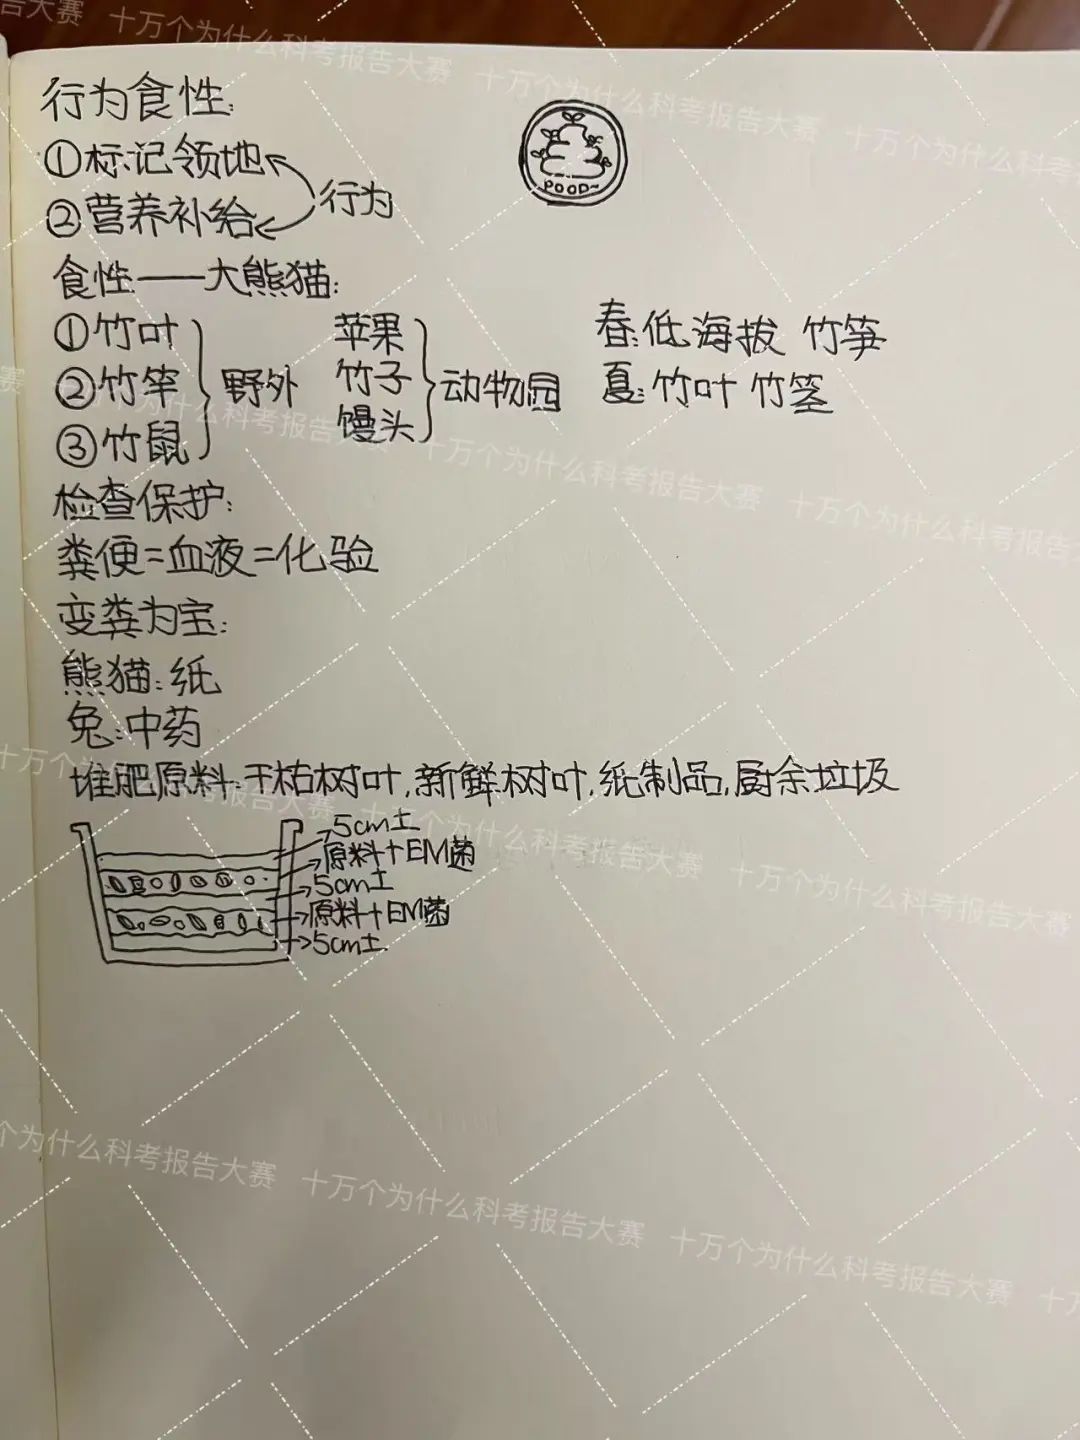 行为食性:
①标记领地
②营养补给
行为
POOP~
食性——大熊猫:
①竹叶
②竹竿
③竹鼠
野外
苹果
竹子
馒头
动物园
春:低海拔 竹笋
夏:竹叶 竹茎
检查保护:
粪便=血液=化验
变粪为宝:
熊猫:纸
兔:中药
堆肥原料:干枯树叶,新鲜树叶,纸制品,厨余垃圾
5cm土
原料+EM菌
5cm土
原料+EM菌
5cm土
十万个为什么科考报告大赛